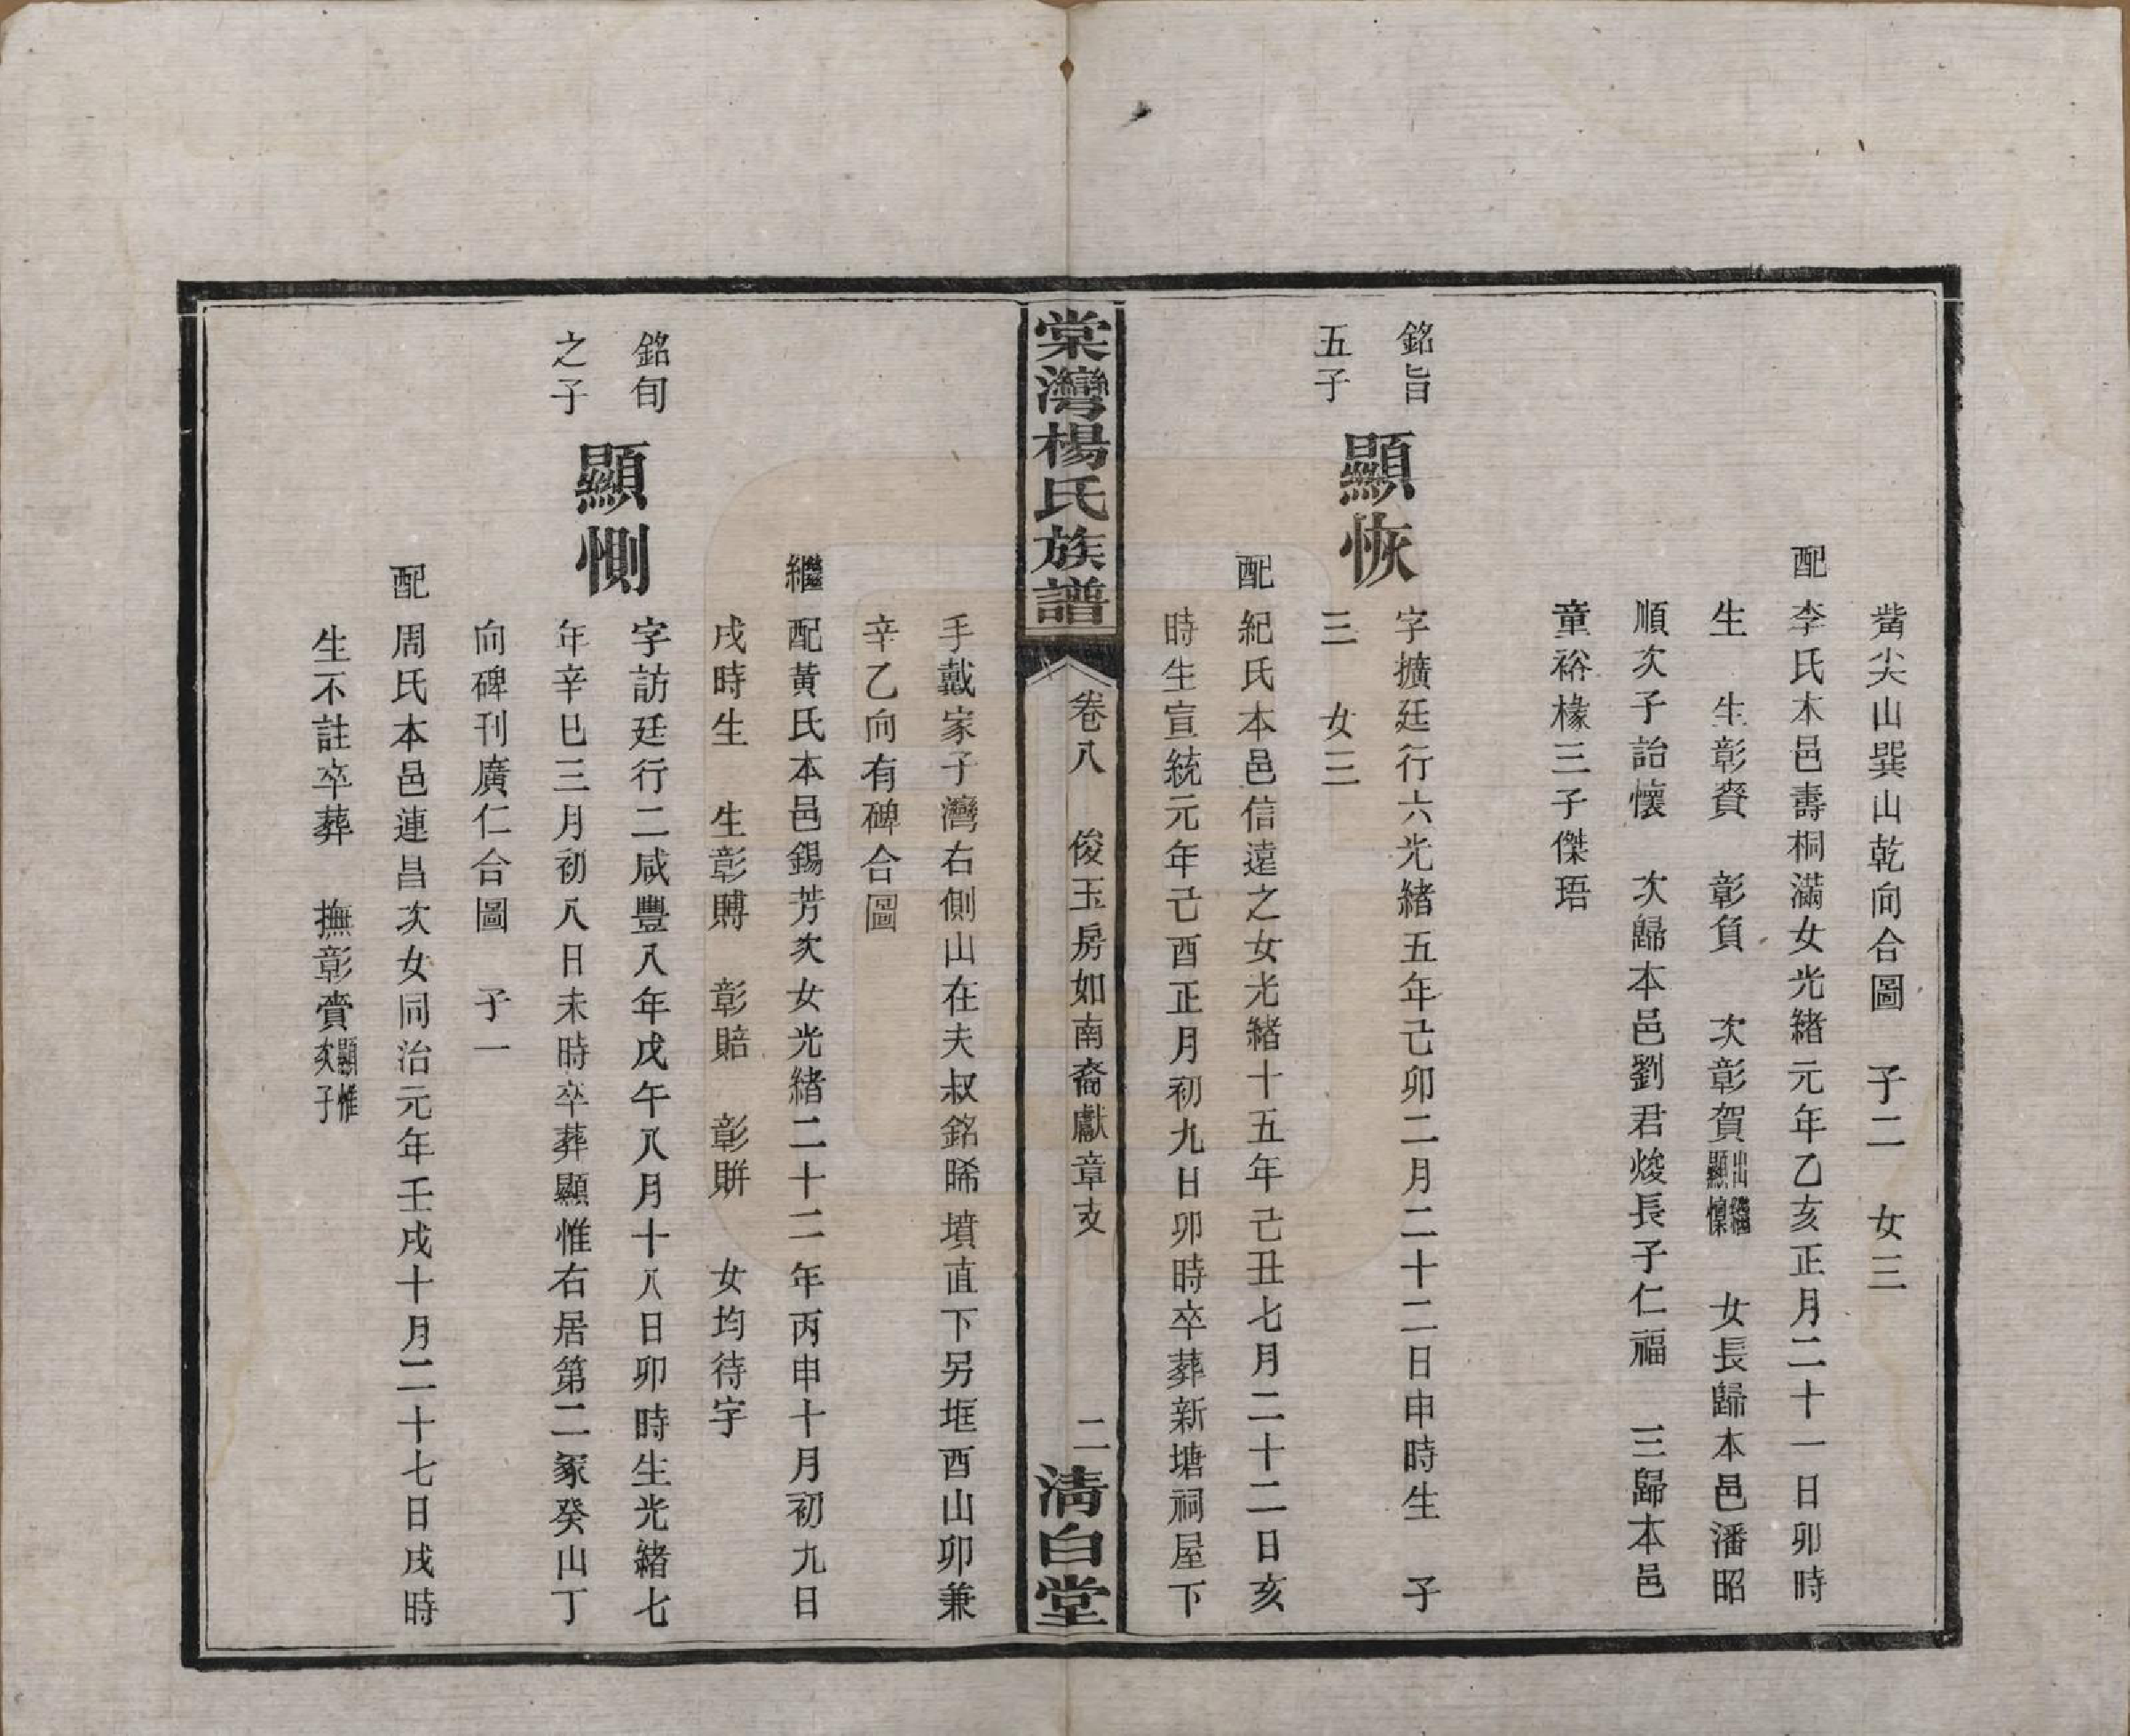 觜尖山巽山乾向合圖　子二　女三
配李氏本邑壽桐滿女光緒元年乙亥正月二十一日卯時
生　生彰賚　彰負　次彰賀出繼顯懍　女長歸本邑潘昭
順次子詒懷　次歸本邑劉君焌長子仁福　三歸本邑
童裕椽三子傑珸
銘旨
五子
顯恢
字擴廷行六光緒五年己卯二月二十二日申時生　子
三　女三
配紀氏本邑信遠之女光緒十五年己丑七月二十二日亥
時生宣統元年己酉正月初九日卯時卒葬新塘祠屋下
棠灣楊氏族譜
卷八　俊玉房如南裔獻章支
二
清白堂
手戴家子灣右側山在夫叔銘晞墳直下另堆酉山卯兼
辛乙向有碑合圖
繼配黃氏本邑錫芳次女光緒二十二年丙申十月初九日
戌時生　生彰賻　彰賠　彰賆　女均待字
銘旬
之子
顯惻
字訪廷行二咸豐八年戊午八月十八日卯時生光緒七
年辛巳三月初八日未時卒葬顯惟右居第二冢癸山丁
向碑刊廣仁合圖　子一
配周氏本邑連昌次女同治元年壬戌十月二十七日戌時
生不註卒葬　撫彰賫顯惟次子